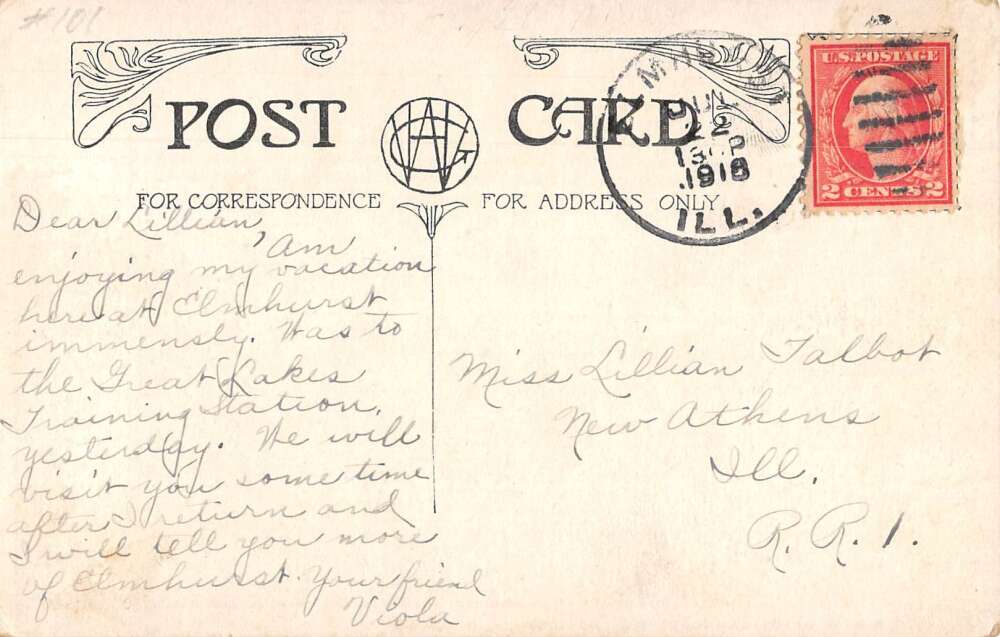 #101
POST CARD
FOR CORRESPONDENCE
FOR ADDRESS ONLY
ELMHURST
JUN
22
3 P
1918
ILL.
U.S. POSTAGE
2 CENTS 2
Dear Lillian,
Am
enjoying my vacation
here at Elmhurst
immensly. Was to
the Great Lakes
Training Station,
yesterday. We will
visit you some time
after I return and
I will tell you more
of Elmhurst. Your friend
Viola
Miss Lillian Talbot
New Athens
Ill.
R. R. 1.